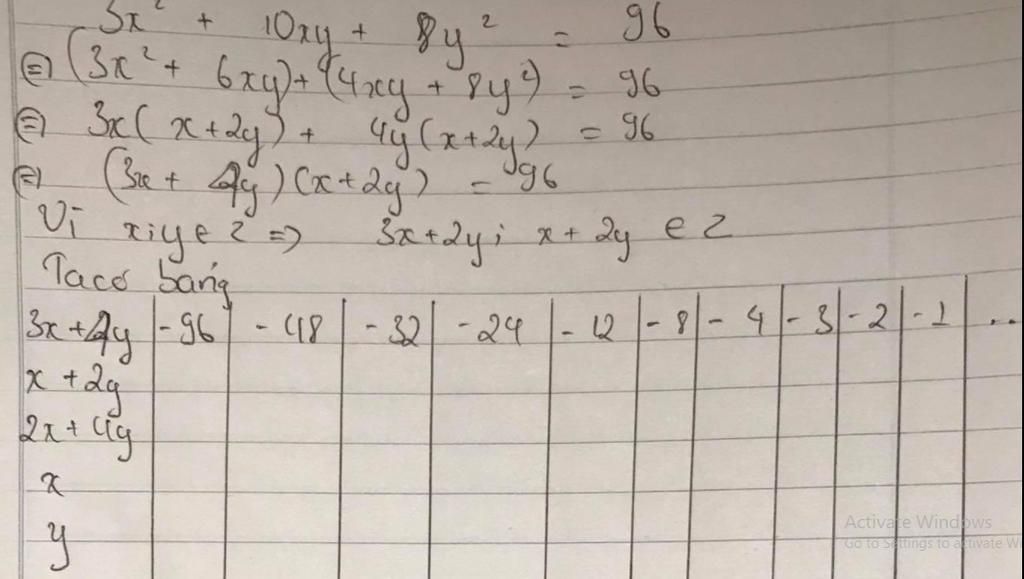 3x² + 10xy + 8y² = 96
⇔ (3x² + 6xy) + (4xy + 8y²) = 96
⇔ 3x(x+2y) + 4y(x+2y) = 96
⇔ (3x + 4y)(x+2y) = 96
Vì x;y e Z => 3x+2y; x + 2y e Z
Ta có bảng
3x+4y | -96 | -48 | -32 | -24 | -12 | -8 | -4 | -3 | -2 | -1 | ..
x + 2y
2x + 4y
x
y
Activate Windows
Go to Settings to activate Wi